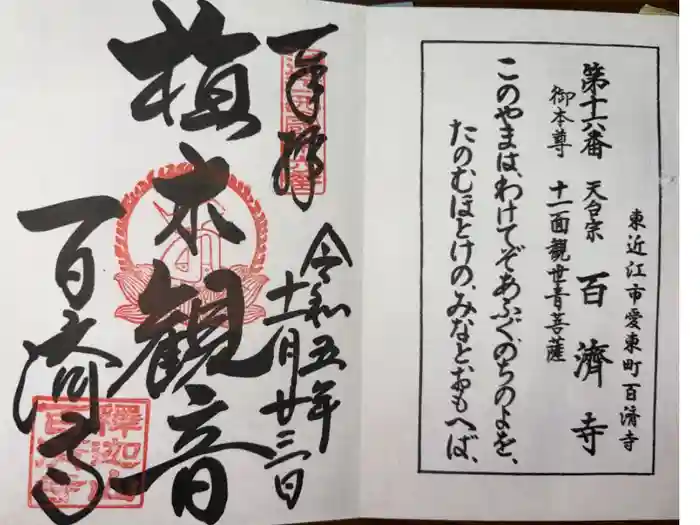 東近江市愛東町百済寺
第十六番 天台宗 百濟寺
御本尊 十一面觀世音菩薩
このやまは、わけてぞあふぐのちのよを、
たのむほとけの、みなとおもへば、
奉拝
令和五年
十一月廿三日
植木觀音
百済寺
釋迦山
百済寺